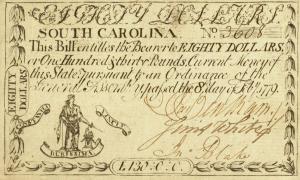 EIGHTY DOLLARS.
SOUTH CAROLINA. No 3608
This Bill entitles the Bearer to EIGHTY DOLLARS
or One Hundred & thirty Pounds, Current Money of
this State, pursuant to an Ordinance of the
General Assembly passed the 8 day of Feb.y 1779.
EIGHTY DOLLARS
£.130:0:0.